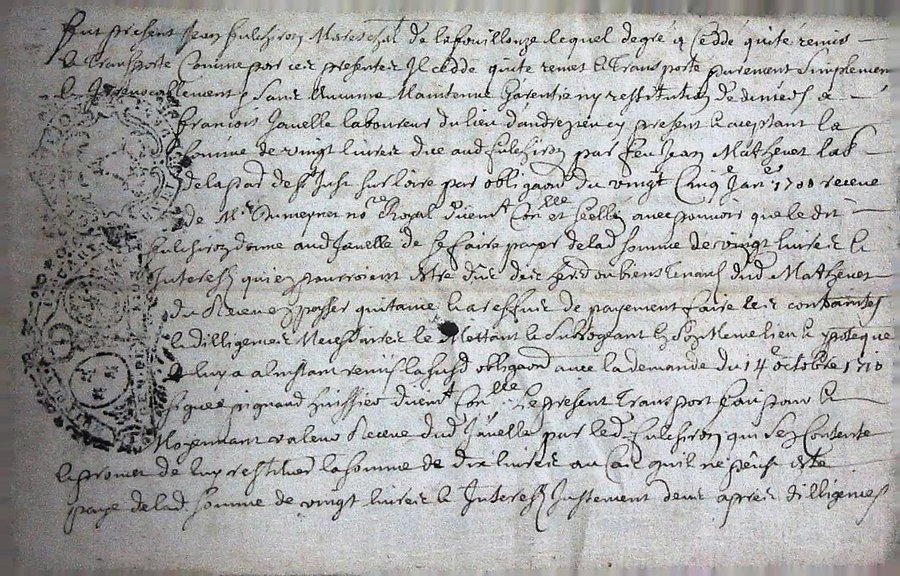 Fut présent Jean fulchiron Mareschal de lafouillouze lequel degré a Ceddé quité remis
& Transporté Comme par ces présentes Il cedde quite remet & Transporte purement simplement
& Irrevocablement sans aucune Maintenue Garentie ny restitution de deniers a
françois Javelle laboureur du lieu d'andrezieu cy present & aceptant la
somme de vingt livres due aud fulchiron par feu Jean Mathevet lab
delapar de St Just sur loire par obligaon du vingt Cinq Janer 1700 receue
de Me Dumeynet nore Royal duemt Conllee et scellée avec pouvoir que le dit
fulchiron donne aud Javelle de se faire payer delad somme de vingt livres &
Interest qui en pourroient estre dus des hers ou biens tenants dud Mathevet
du Receu passer quitance & a reffus de payement faire les contraintes
& dilligences Necessaires le Mettant & Subrogeant en son lieu & ypoteque
& luy a alinstant remis la susd obligaon avec la demande du 14e octobre 1710
signée huissier duemt Conllee & le present Transport fait pour &
Moyennant valeur Receue dud Javelle par led fulchiron qui sen Contente
& promet de luy restituer la somme de dix livres au Cas quil ne peut estre
payé delad somme de vingt livres & Interest Justement deus apres dilligences